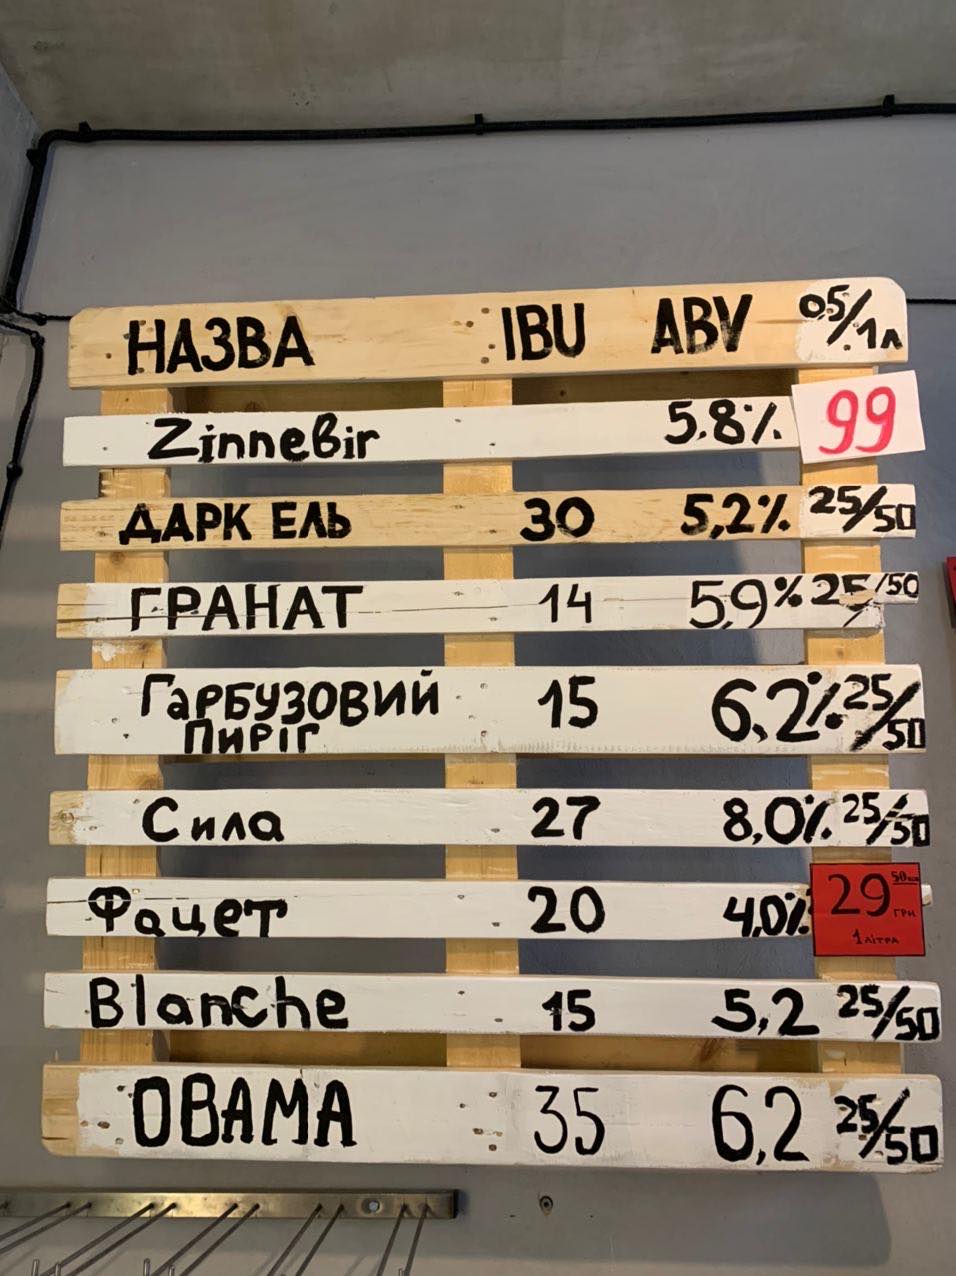 НАЗВА IBU ABV 0,5/1л
Zinneбir 5.8% 99
ДАРК ЕЛЬ 30 5,2% 25/50
ГРАНАТ 14 5,9% 25/50
ГАРБУЗОВИЙ 15 6,2% 25/50
Пиріг
Сила 27 8,0% 25/50
Фацет 20 4,0% 29 50коп ГРН
1 ЛІТРА
Blanche 15 5,2 25/50
OBAMA 35 6,2 25/50